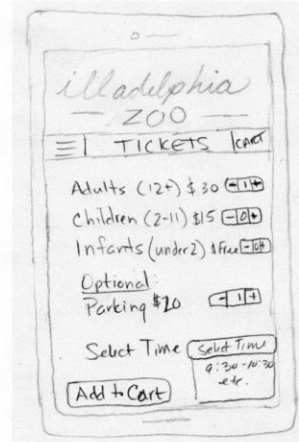 illadelphia
ZOO
TICKETS CART
Adults (12+) $30 - 1 +
Children (2-11) $15 - 0 +
Infants (under 2) $Free - 0 +
Optional:
Parking $20 - 1 +
Select Time Select Time
9:30-10:30
etc.
Add to Cart